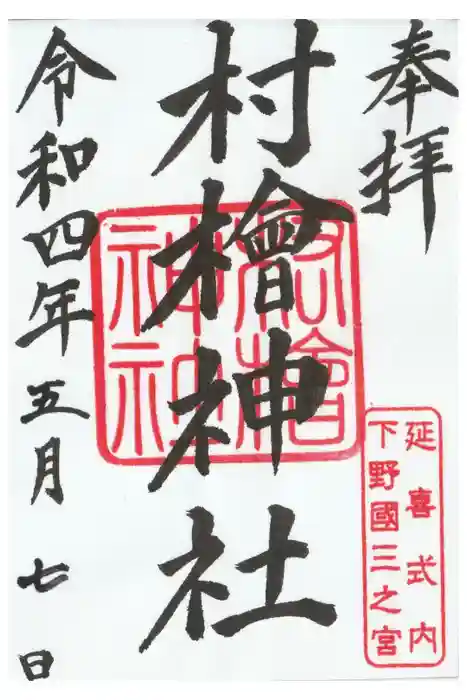 奉拝
村檜神社
令和四年五月七日
延喜式内
下野國三之宮
村檜
神社